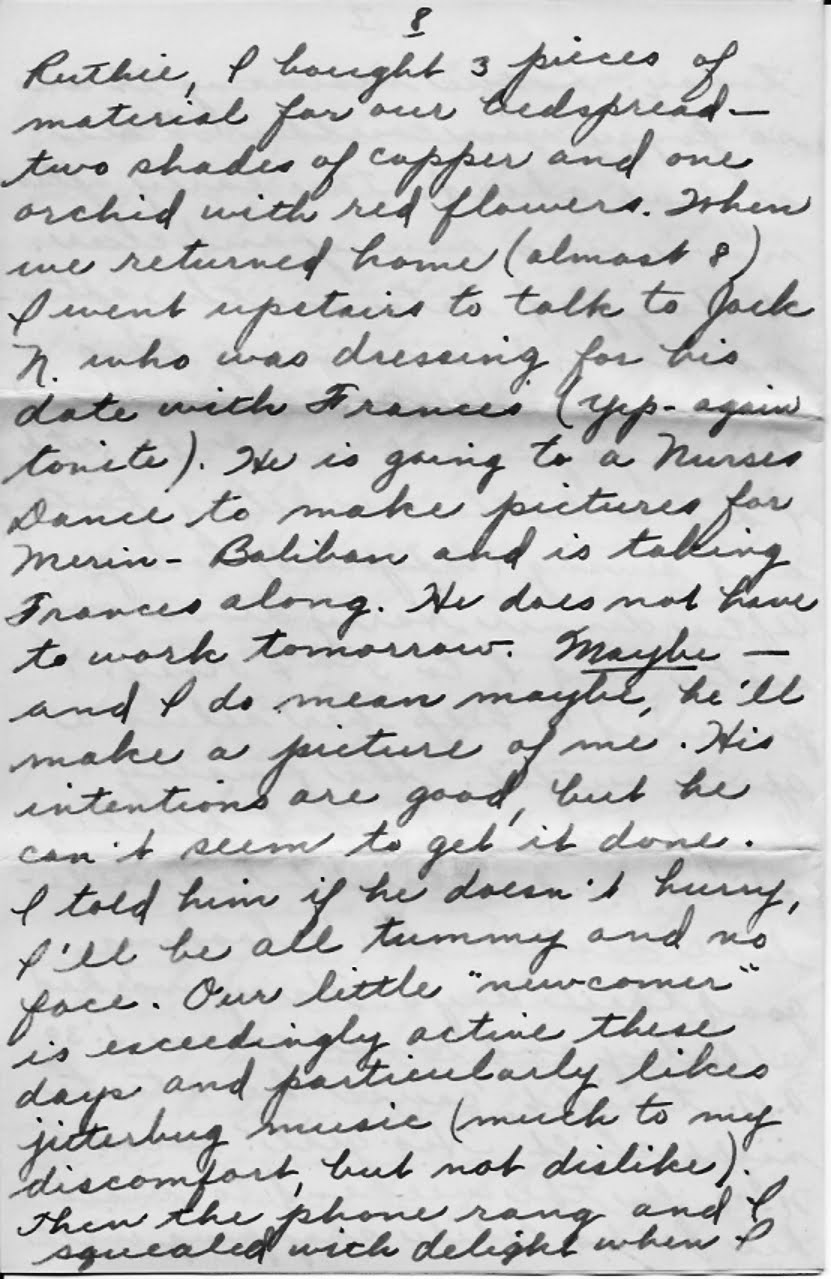 8
Ruthie, I bought 3 pieces of
material for our bedspread—
two shades of copper and one
orchid with red flowers. When
we returned home (almost 8)
I went upstairs to talk to Jack
N. who was dressing for his
date with Frances (yep- again
tonite). He is going to a Nurses
Dance to make pictures for
Merin- Baliban and is taking
Frances along. He does not have
to work tomorrow. Maybe —
and I do mean maybe, he'll
make a picture of me. His
intentions are good, but he
can't seem to get it done.
I told him if he doesn't hurry,
I'll be all tummy and no
face. Our little "newcomer"
is exceedingly active these
days and particularly likes
jitterbug music (much to my
discomfort, but not dislike).
Then the phone rang and I
squealed with delight when I